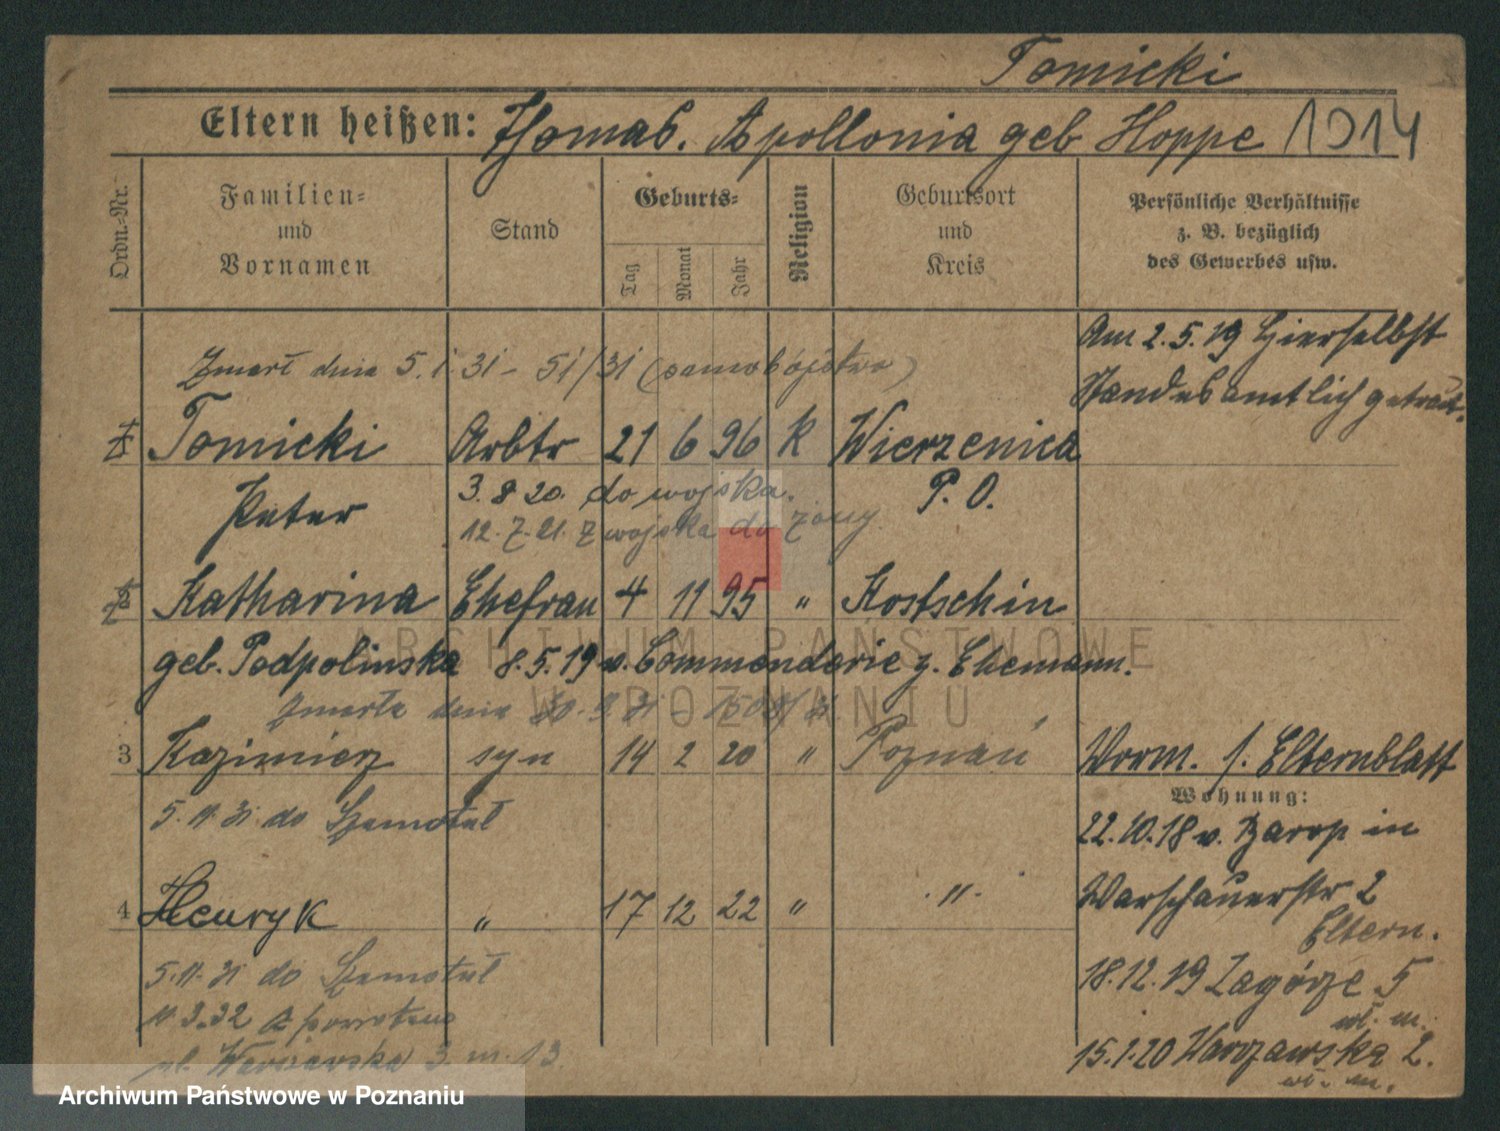 Tomicki
Eltern heißen: Thomas. Apollonia geb Hoppe 1914
Ordn.-Nr.
Familien- und Vornamen
Stand
Geburts-
Tag
Monat
Jahr
Religion
Geburtsort und Kreis
Persönliche Verhältnisse z. B. bezüglich des Gewerbes usw.
Am 2.5.19 hierselbst
Standesamtlich getraut.
Zmarł dnia 5.1.31 - 51/31 (samobójstwo)
Tomicki Arbtr 21 6 96 K Wierzenica
Peter 3.8 20. do wojska. P. O.
12.7.21. z wojska do żony
Katharina Ehefrau 4 11 95 " Kostschin
geb. Podpolinska 8.5.19 v. Commenderie z. Ehemann.
Zmarła dnia
3 Kazimierz syn 14 2 20 " Poznań
Vorm. s. Elternblatt
Wohnung:
5.11.31 do Szamotuł
22.10.18 v. in
4 Henryk " 17 12 22 " "
Warschauerstr 2
Eltern.
5.11.31 do Szamotuł
18.12.19 Zagórze 5
wł. m.
11.3.32 z powrotem
15.1.20 Warszawska 2.
wł. m.
ul. Warszawska 3 m. 13
ARCHIWUM PAŃSTWOWE
W POZNANIU
Archiwum Państwowe w Poznaniu